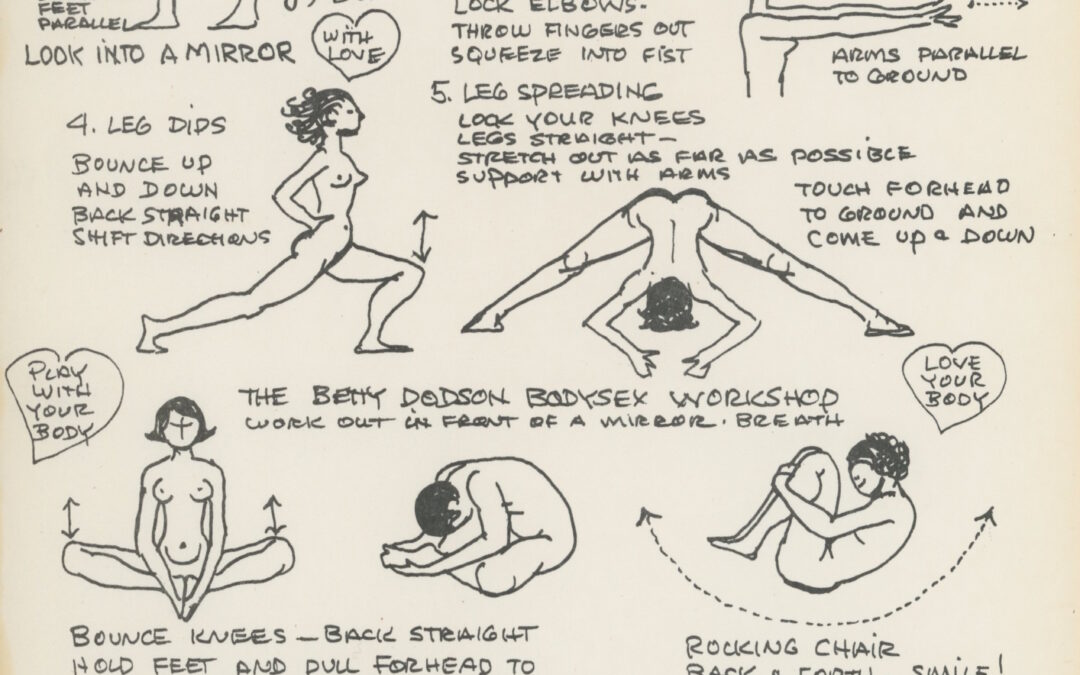 FEET
PARALLEL
LOOK INTO A MIRROR
WITH
LOVE
LOCK ELBOWS.
THROW FINGERS OUT
SQUEEZE INTO FIST
ARMS PARALLEL
TO GROUND
4. LEG DIPS
BOUNCE UP
AND DOWN
BACK STRAIGHT
SHIFT DIRECTIONS
5. LEG SPREADING
LOCK YOUR KNEES
LEGS STRAIGHT—
STRETCH OUT AS FAR AS POSSIBLE
SUPPORT WITH ARMS
TOUCH FORHEAD
TO GROUND AND
COME UP & DOWN
PLAY
WITH
YOUR
BODY
THE BETTY DODSON BODYSEX WORKSHOP
WORK OUT IN FRONT OF A MIRROR. BREATH
LOVE
YOUR
BODY
BOUNCE KNEES — BACK STRAIGHT
HOLD FEET AND PULL FORHEAD TO
ROCKING CHAIR
BACK & FORTH SMILE!